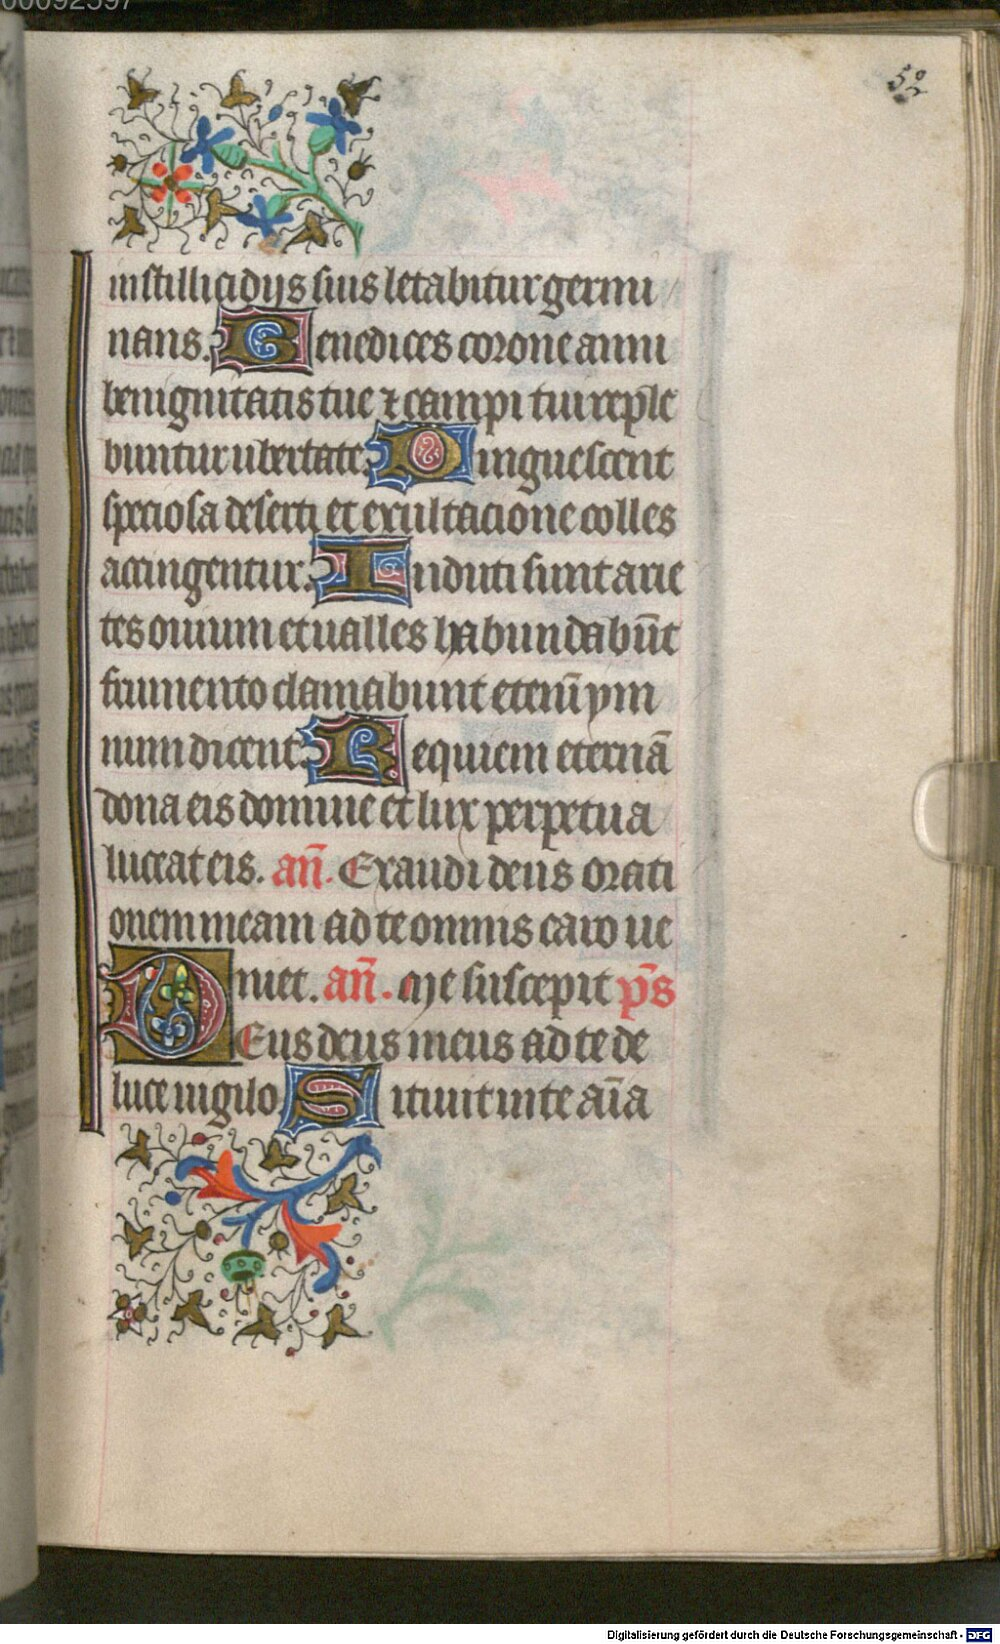 00092597
52
in stillicidijs suis letabitur germi
nans. Benedices corone anni
benignitatis tue ⁊ campi tui reple
buntur ubertate. Pinguescent
speciosa deserti et exultacione colles
accingentur. Induti sunt arie
tes ouium et ualles habundabūt
frumento clamabunt etenī ym
num dicent. Requiem eternā
dona eis domine et lux perpetua
luceat eis. an̄. Exaudi deus orati
onem meam ad te omnis caro ue
niet. an̄. Me suscepit p̄s
DEus deus meus ad te de
luce uigilo. Sitiuit in te aīa
Digitalisierung gefördert durch die Deutsche Forschungsgemeinschaft - DFG